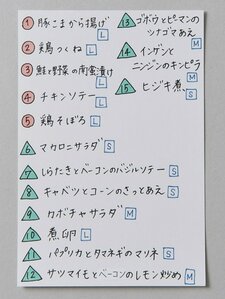 ① 豚こまから揚げ L
② 鶏つくね L
③ 鮭と野菜の南蛮漬け L
④ チキンソテー L
⑤ 鶏そぼろ L
6 マカロニサラダ S
7 しらたきとベーコンのバジルソテー S
8 キャベツとコーンのさっとあえ S
9 カボチャサラダ M
10 煮卵 L
11 パプリカとタマネギのマリネ S
12 サツマイモとベーコンのレモン炒め M
13 ゴボウとピーマンの
ツナゴマあえ M
14 インゲンと
ニンジンのキンピラ M
15 ヒジキ煮 S